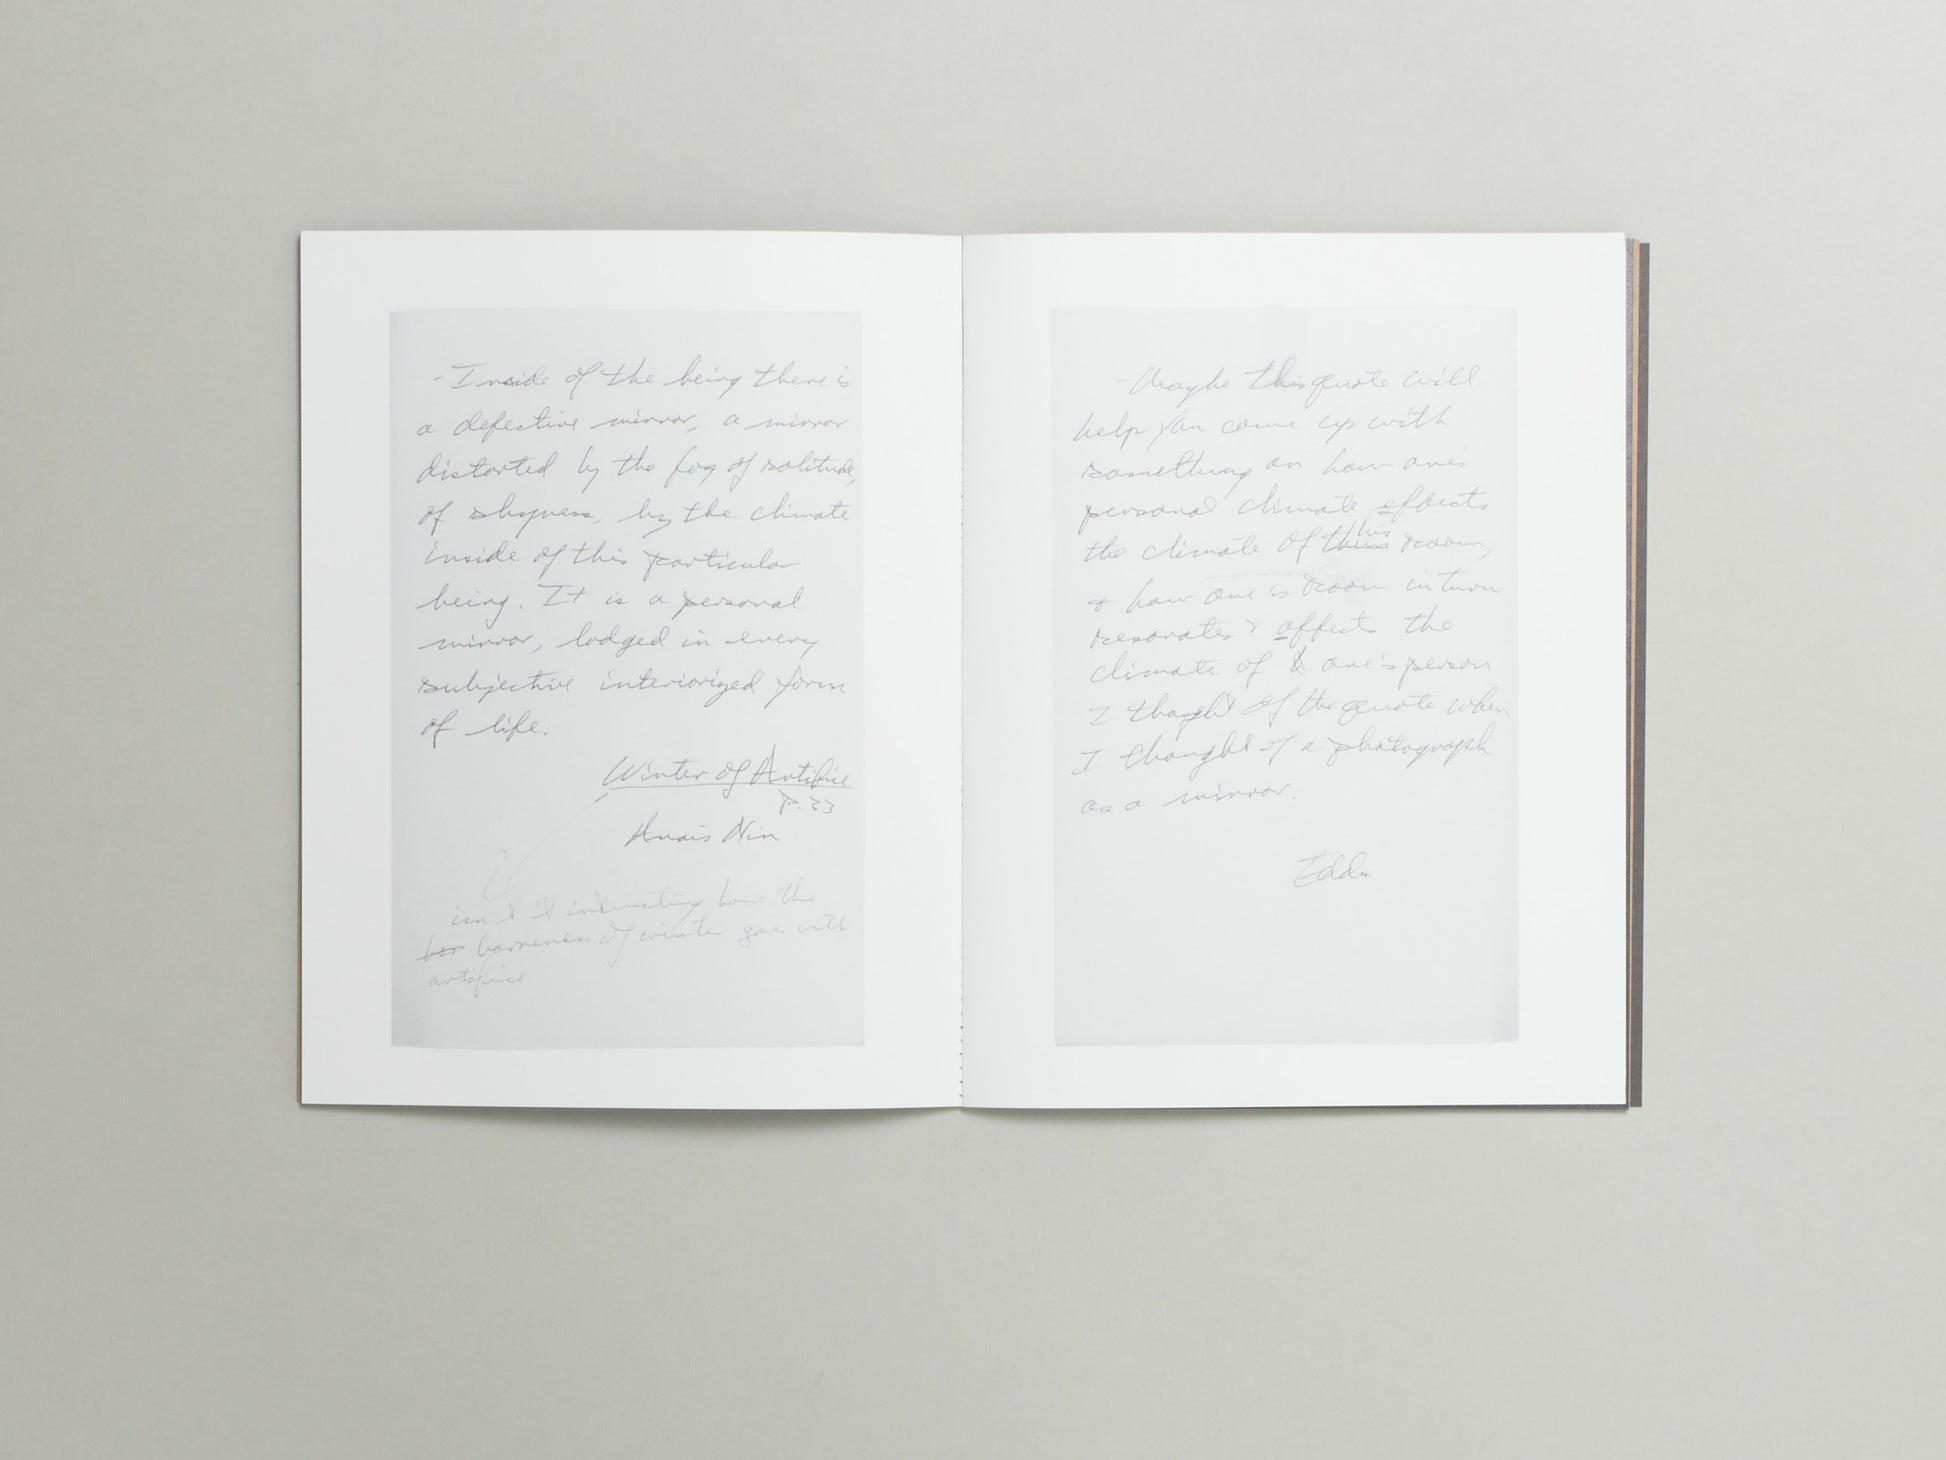 - Inside of the being there is
a defective mirror, a mirror
distorted by the fog of solitude,
of shyness, by the climate
inside of this particular
being. It is a personal
mirror, lodged in every
subjective interiorized form
of life.
Winter of Artifice
p. 33
Anais Nin
isn't it interesting how the
bar barreness of winter goes with
artifice
- Maybe this quote will
help you come up with
something on how one's
personal climate effects
the climate of this room,
& how one's room in turn
resonates & affects the
climate of one's person.
I thought of the quote when
I thought of a photograph
as a mirror.